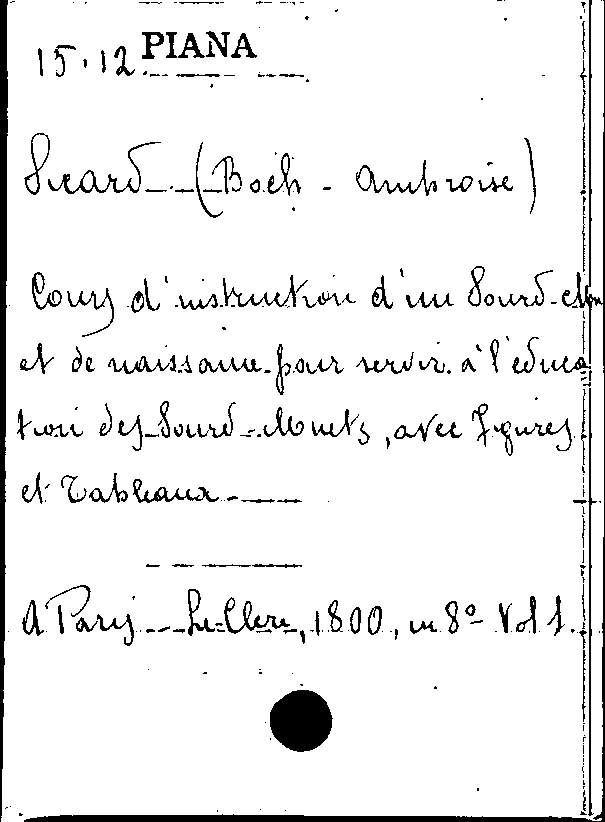 15.12. PIANA
Sicard (Roch - Ambroise)
Cours d'instruction d'un Sourd-Mu
et de naissance pour servir à l'éduca
tion des Sourd-Muets, avec Figures
et Tableaux
A Paris Le Clere, 1800, in 8º Vol 1.